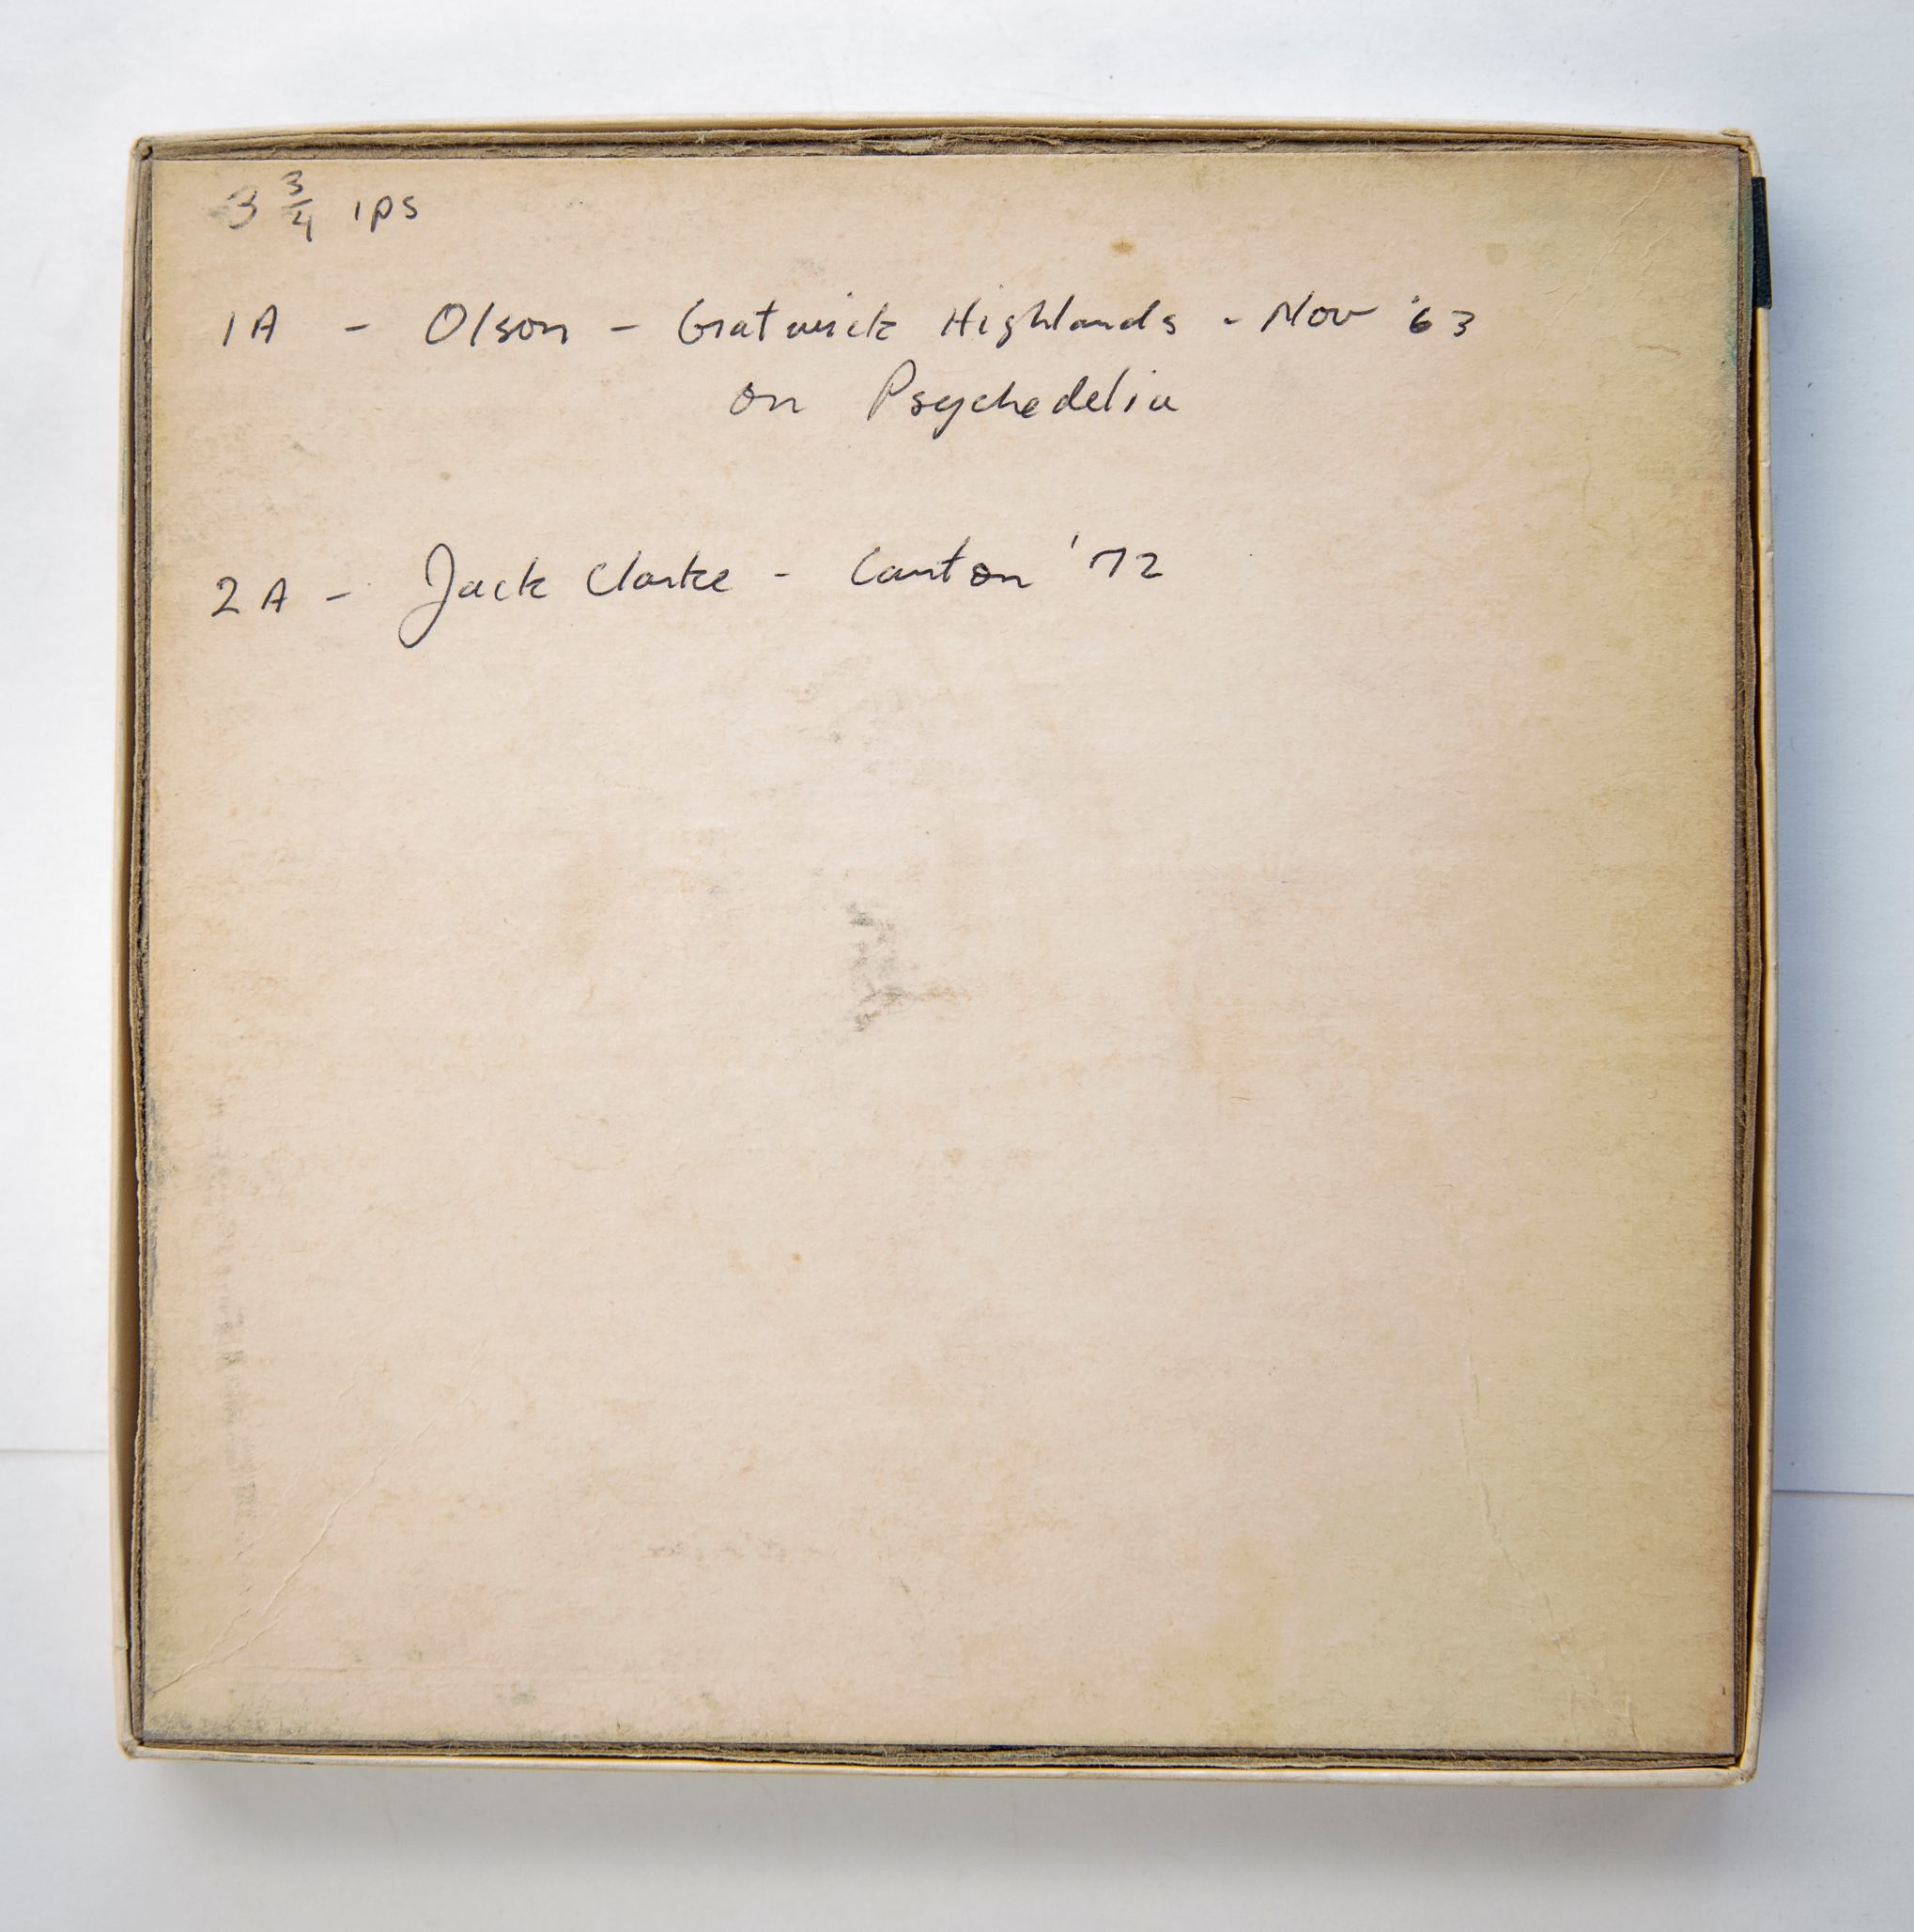 3 3/4 ips
1A - Olson - Gratwick Highlands - Nov '63
on Psychedelia
2A - Jack Clarke - Canton '72